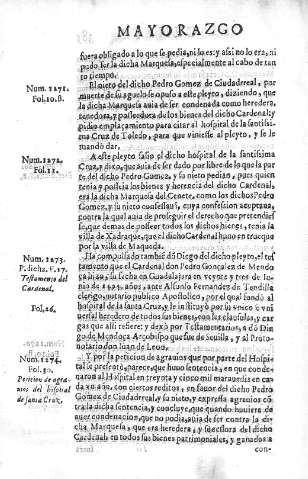 MAYORAZGO
fuera obligado a lo que se pedia, ni lo es: y assi no lo era, ni
pudo ser la dicha Marquesa, especialmente al cabo de tan
to tiempo.
Num. 1271.
Fol. 10. B.
El nieto del dicho Pedro Gomez de Ciudadrreal, por
muerte de su aguelo se opuso a este pleyto, diziendo, que
la dicha Marquesa auia de ser condenada como heredera,
tenedora, y posseedora de los bienes del dicho Cardenal: y
pidio emplaçamiento para citar al hospital de la santissi
ma Cruz de Toledo, para que viniesse al pleyto, y se le
mandò dar.
Num. 1272.
Fol. 12.
A este pleyto salio el dicho hospital de la santissima
Cruz, y dixo, que auia de ser dado por libre de lo que la par
te del dicho Pedro Gomez, y su nieto pedian, pues quien
tenia y posseia los bienes y herencia del dicho Cardenal,
era la dicha Marquesa del Cenete, como los dichos Pedro
Gomez, y su nieto confessauã, cuya confession aceptaua,
contra la qual auia de proseguir el derecho que pretendies
se, que demas de posseer todos los dichos bienes, tenia la
villa de Xadraque, que el dicho Cardenal huuo en trueque
por la villa de Maqueda.
Num. 1273.
P. dicha. F. 17.
Testamento del
Cardenal.
Fol. 26.
Ha compulsado tambiẽ do Diego del dicho pleyto, el tes
tamento que el Cardenal don Pero Gonçales de Mendo
ça hizo, su fecha en Guadalajara en veynte y tres de Iu-
nio de 1494. años, ante Alfonso Fernandez de Tendilla
clerigo, notario publico Apostolico, por el qual fundò al
hospital de la santa Cruz, y le instituyò por su vnico y vni
uersal heredero de todos sus bienes, con las clausulas, y car
gas que alli refiere: y dexò por Testamentarios, a dõ Die
go de Mendoça Arçobispo que fue de Seuilla, y al Proto-
notario don Iuan de Leon.
Num. 1274.
Fol. 30.
Peticion de agra
uios del hospital
de santa Cruz.
Y por la peticion de agrauios que por parte del Hospi
tal se presentò, parece, que huuo sentencia, en que conde-
naron al Hospital en treynta y cinco mil marauedis en ca
da vn año, con ciertos reditos, en fauor del dicho Pedro
Gomez de Ciudadrreal, y su nieto, y expressa agrauios cõ
tra la dicha sentencia, y concluye, que quando huuiera de
auer condenacion, que no podia, auia de ser contra la di-
cha Marquesa, que era heredera, y sucessora del dicho
Cardenal en todos sus bienes patrimoniales, y ganados a
con-